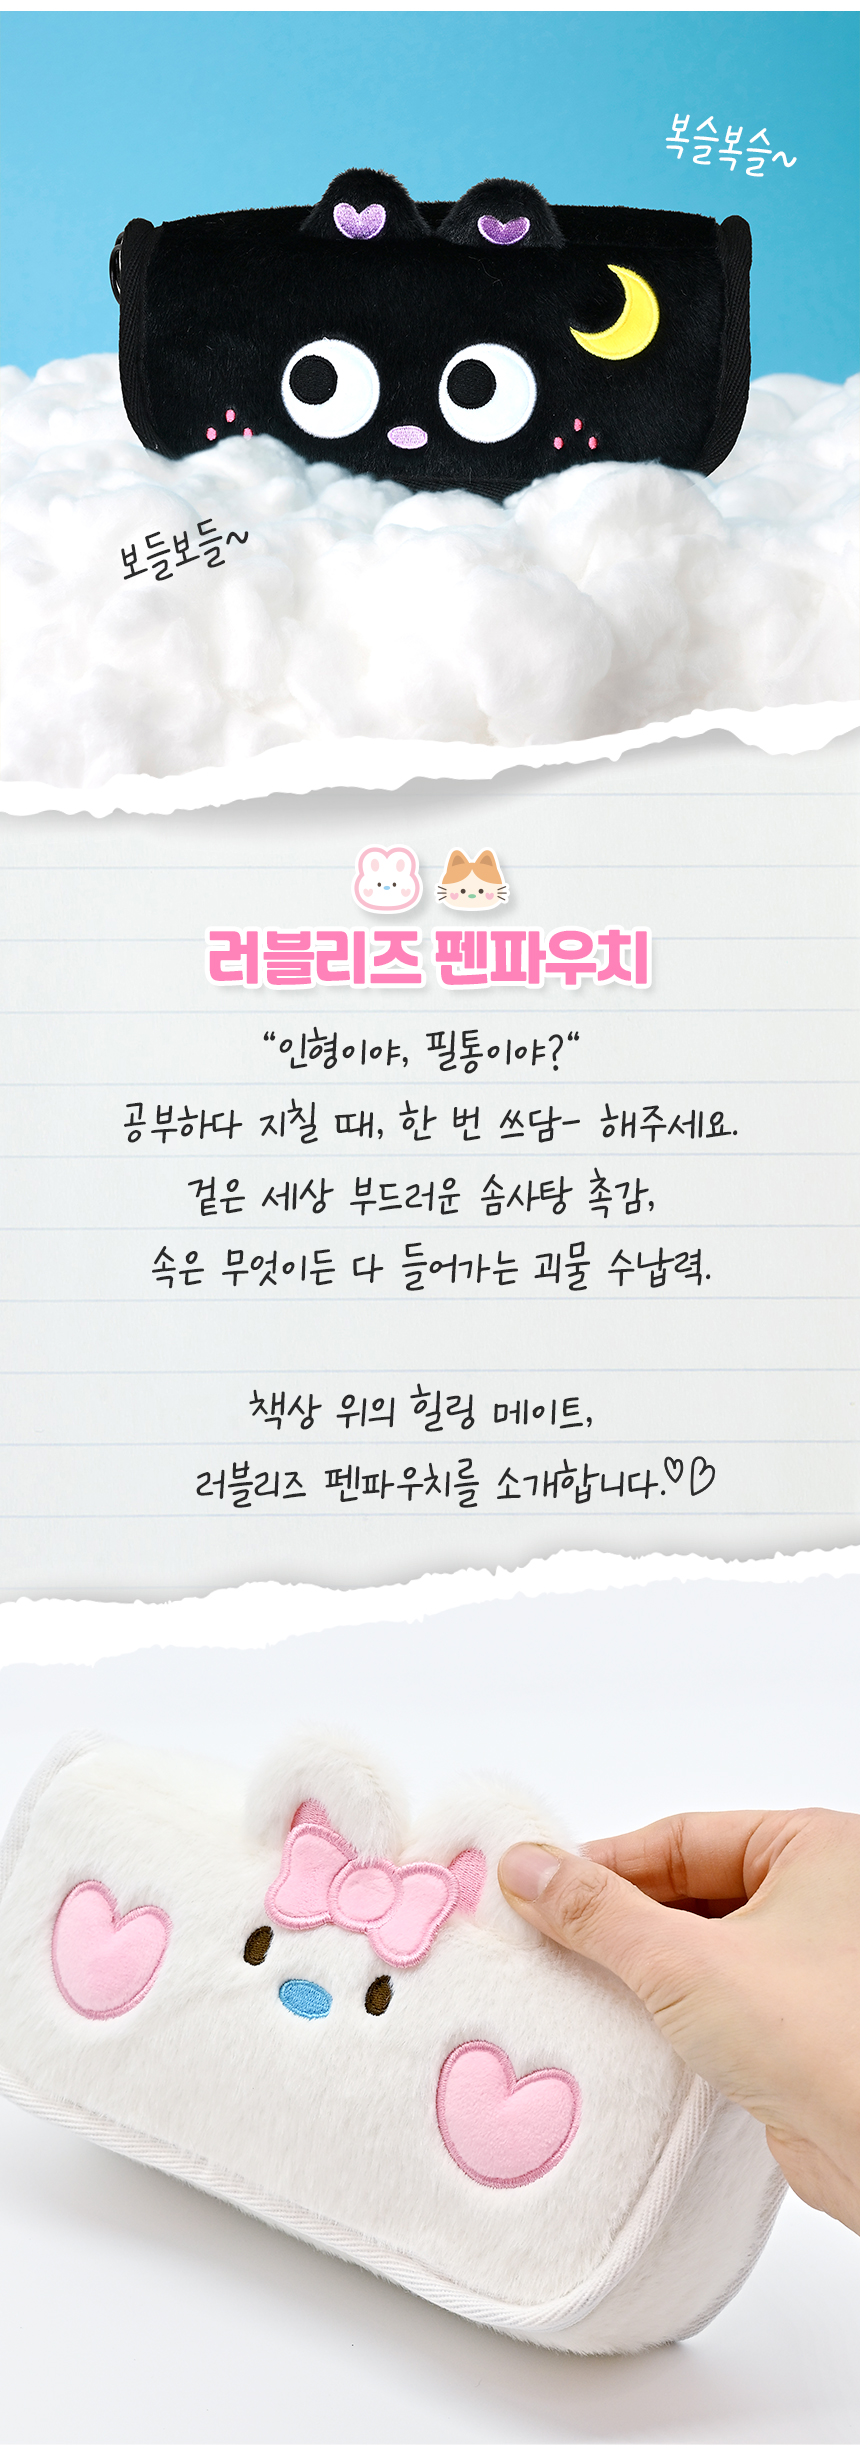 복슬복슬~
보들보들~
러블리즈 펜파우치
“인형이야, 필통이야?“
공부하다 지칠 때, 한 번 쓰담- 해주세요.
겉은 세상 부드러운 솜사탕 촉감,
속은 무엇이든 다 들어가는 괴물 수납력.
책상 위의 힐링 메이트,
러블리즈 펜파우치를 소개합니다.♡♡